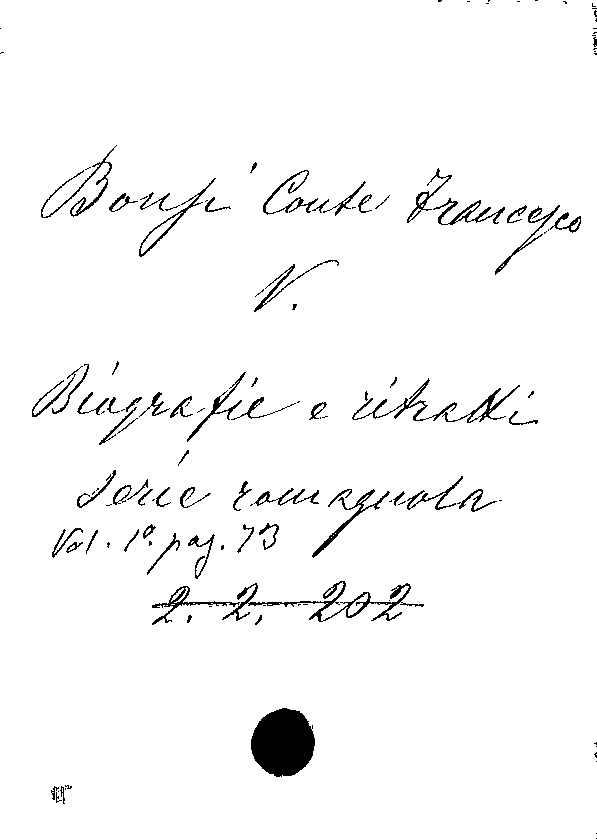 Bonsi Conte Francesco
V.
Biografie e ritratti
serie romagnola
Vol. 1º. pag. 73
2. 2. 202